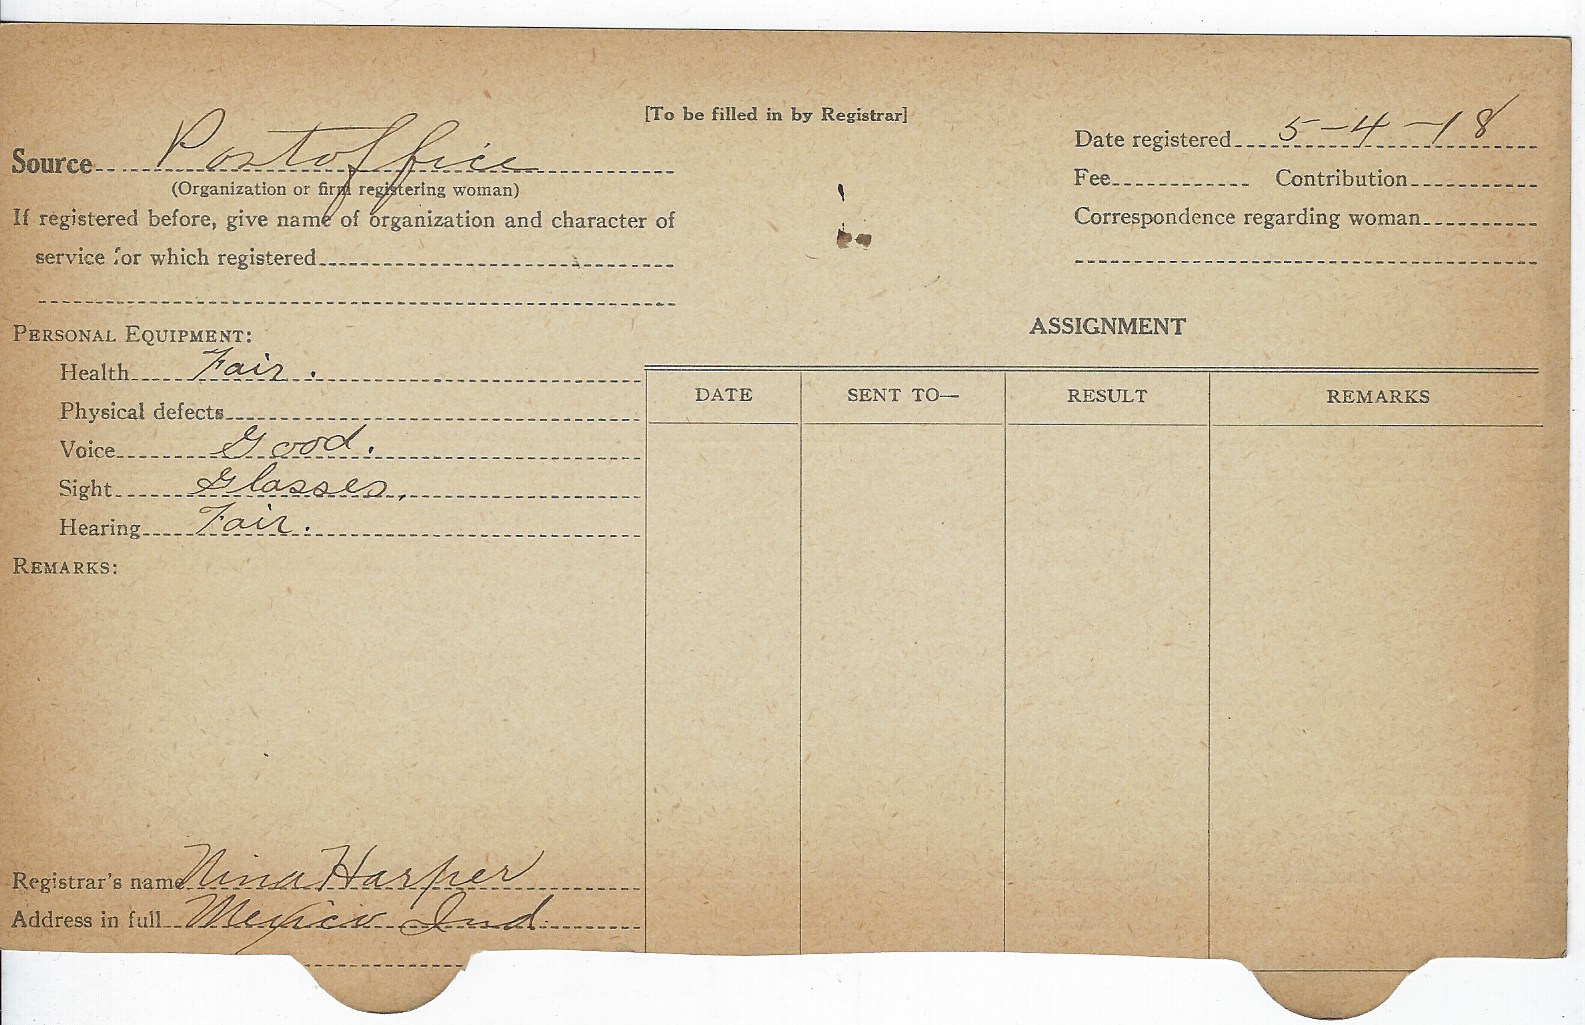 [To be filled in by Registrar]
Source Postoffice
(Organization or firm registering woman)
If registered before, give name of organization and character of
service for which registered
Date registered 5-4-18
Fee Contribution
Correspondence regarding woman
PERSONAL EQUIPMENT:
Health Fair.
Physical defects
Voice Good.
Sight Glasses,
Hearing Fair.
REMARKS:
Registrar's name Nina Harper
Address in full Mexico Ind.
ASSIGNMENT
DATE SENT TO— RESULT REMARKS